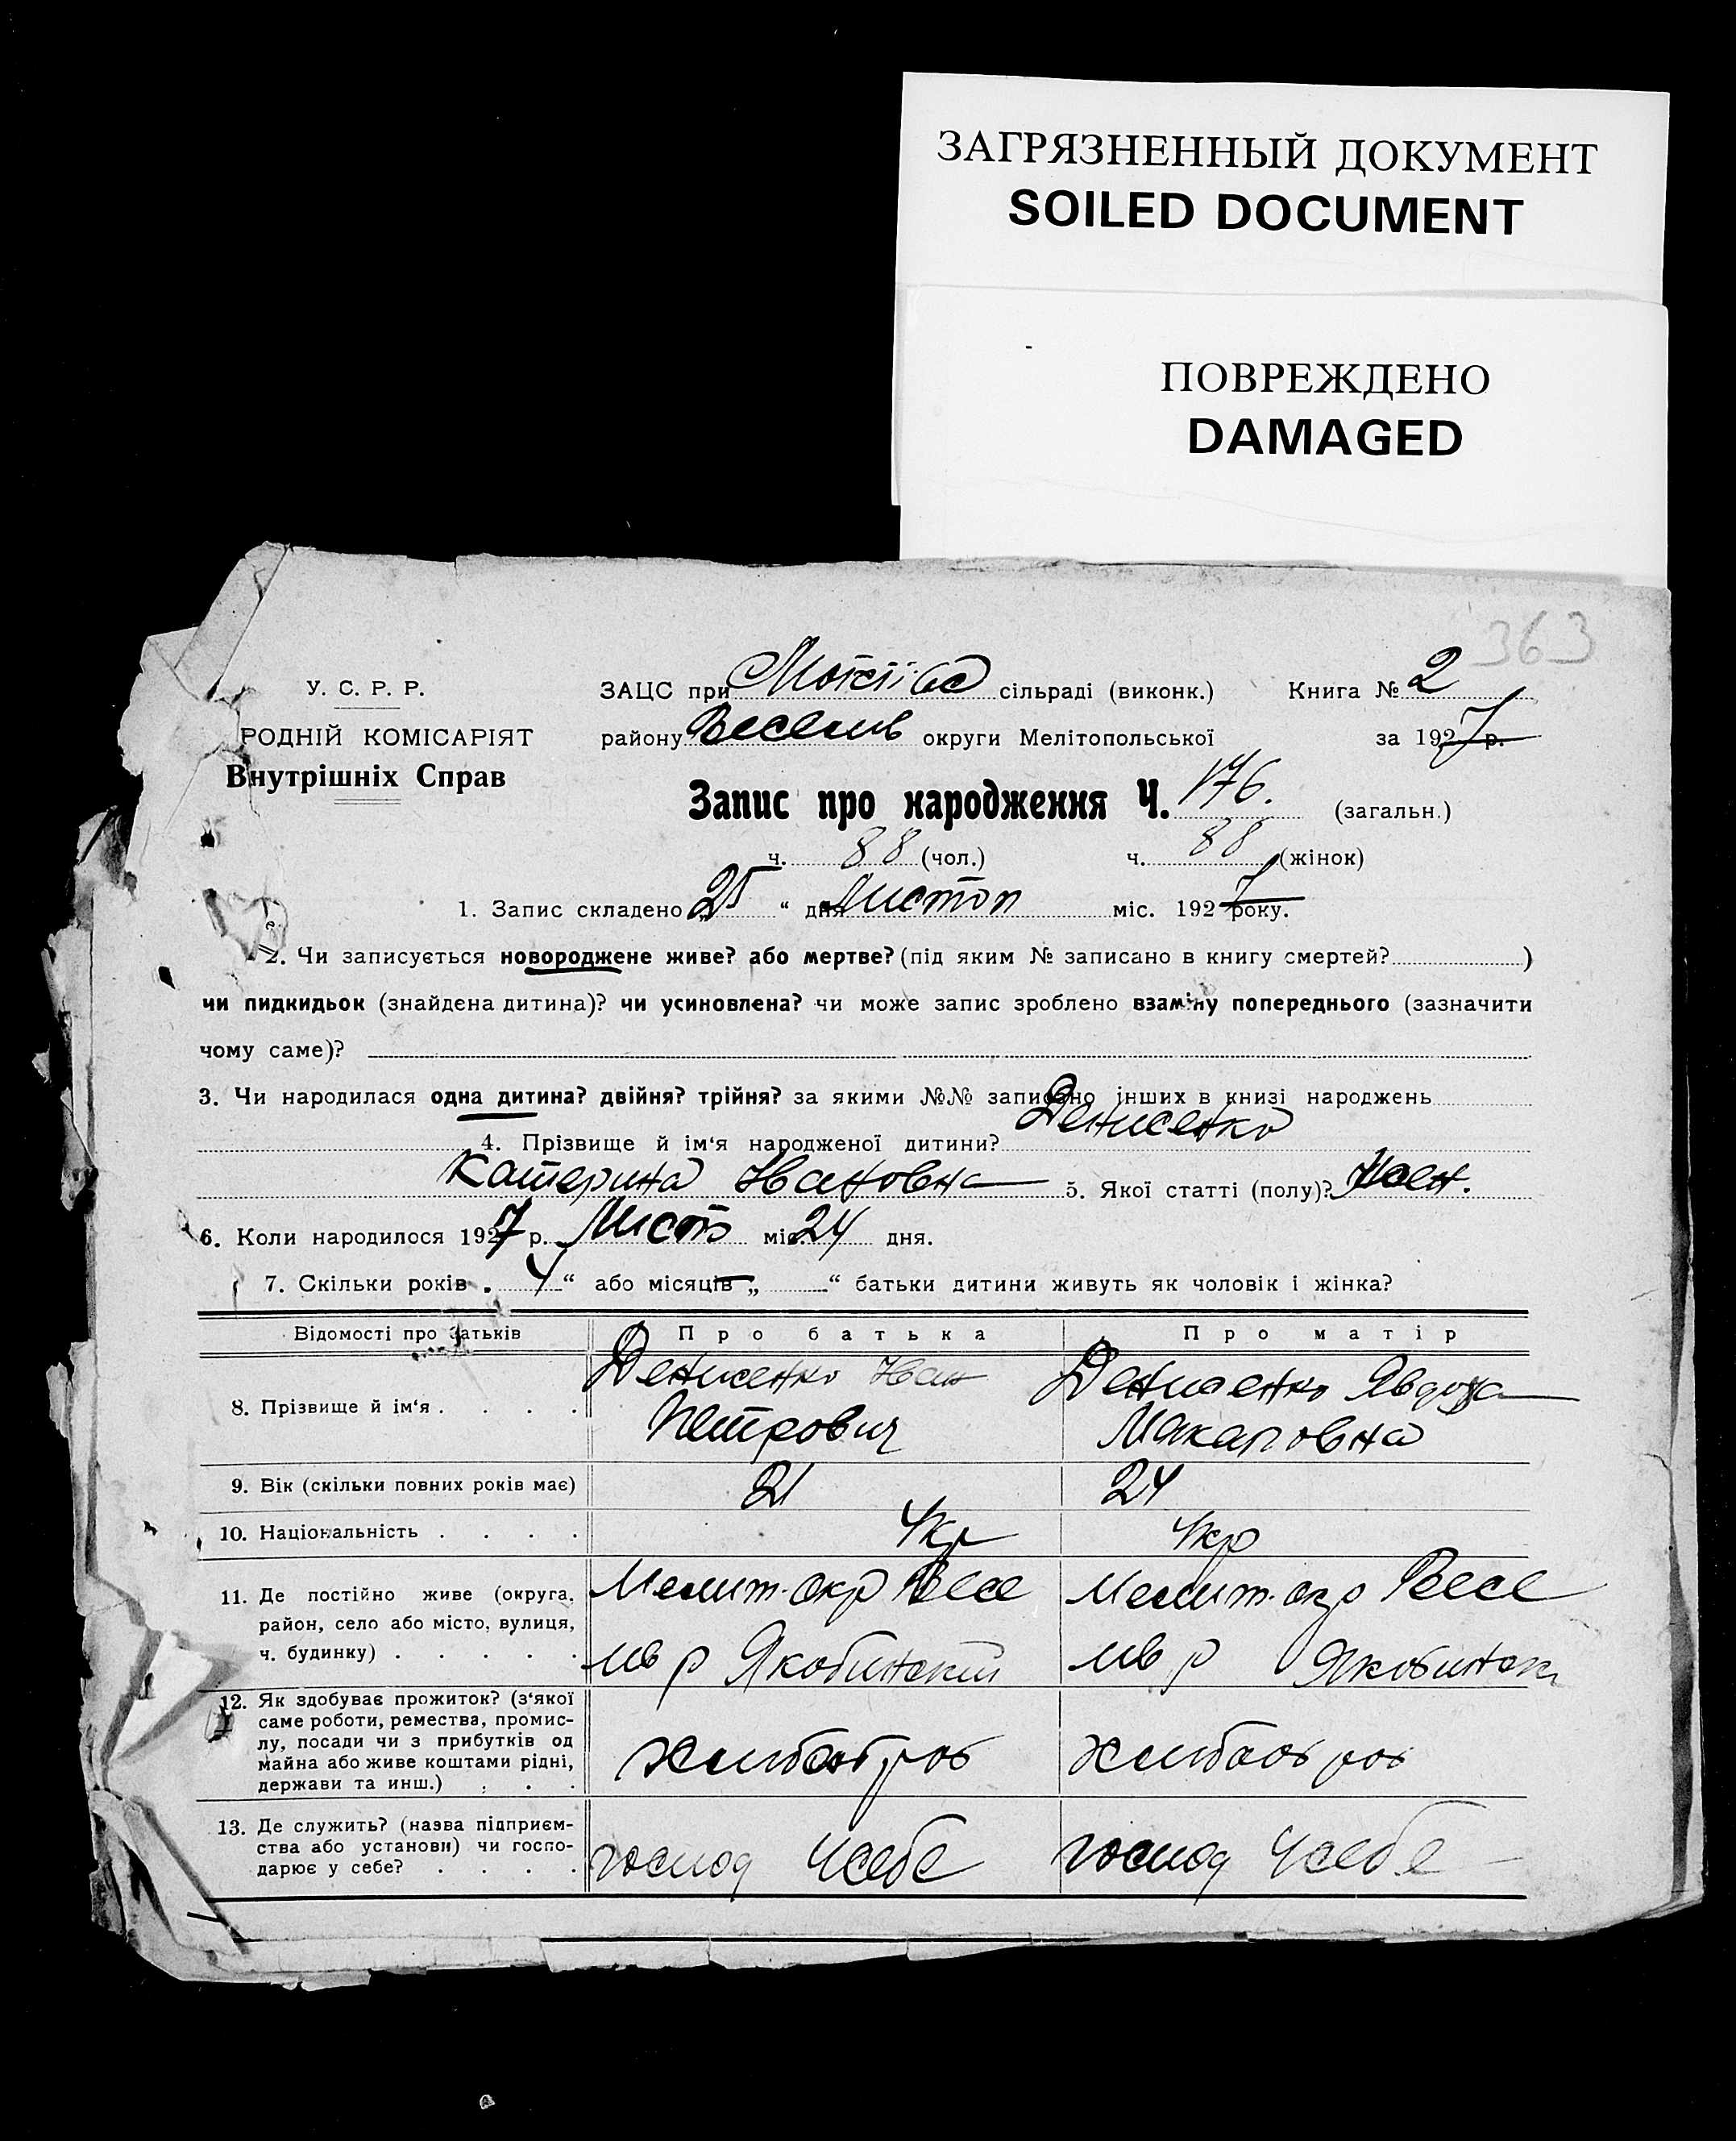 ЗАГРЯЗНЕННЫЙ ДОКУМЕНТ
SOILED DOCUMENT
ПОВРЕЖДЕНО
DAMAGED
363
У. С. Р. Р.
ЗАЦС при сільраді (виконк.) Книга № 2
РОДНІЙ КОМІСАРІЯТ
району Веселів округи Мелітопольської за 1927 р.
Внутрішніх Справ
Запис про народження Ч. 176. (загальн.)
ч. 88 (чол.) ч. 88 (жінок)
1. Запис складено „25“ дня Листоп міс. 1927 року.
2. Чи записується новороджене живе? або мертве? (під яким № записано в книгу смертей? )
чи пидкидьок (знайдена дитина)? чи усиновлена? чи може запис зроблено взаміну попереднього (зазначити
чому саме)?
3. Чи народилася одна дитина? двійня? трійня? за якими №№ записано інших в книзі народжень
4. Прізвище й ім'я народженої дитини? Денисенко
Катерина Ивановна 5. Якої статті (полу)? жен.
6. Коли народилося 1927 р. Лист міс. 24 дня.
7. Скільки років „4“ або місяців „ “ батьки дитини живуть як чоловік і жінка?
Відомості про батьків Про батька Про матір
8. Прізвище й ім'я . . . . Денисенко Иван Петрович Денисенко Явдоха Макаровна
9. Вік (скільки повних років має) 21 24
10. Національність . . . . Укр Укр
11. Де постійно живе (округа, Мелит. окр Весе Мелит. окр Весе
район, село або місто, вулиця,
ч. будинку) . . . . . лів р Якобинскій лів р Якобински
12. Як здобуває прожиток? (з'якої
саме роботи, ремества, промис-
лу, посади чи з прибутків од хлибороб хлибороб
майна або живе коштами рідні,
держави та инш.) . . .
13. Де служить? (назва підприєм-
ства або установи) чи госпо- господ у себе господ у себе
дарює у себе? . . . .